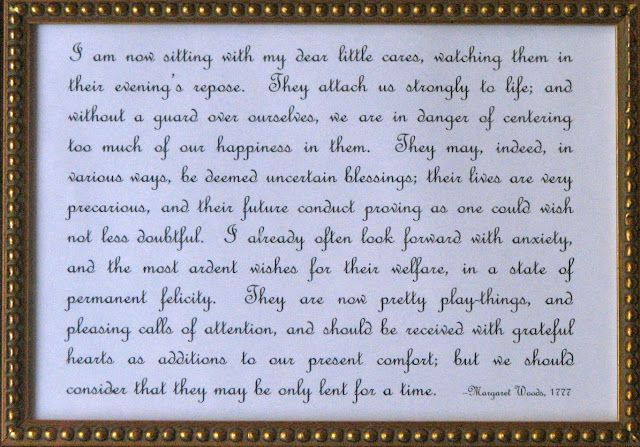 I am now sitting with my dear little cares, watching them in
their evening's repose. They attach us strongly to life; and
without a guard over ourselves, we are in danger of centering
too much of our happiness in them. They may, indeed, in
various ways, be deemed uncertain blessings; their lives are very
precarious, and their future conduct proving as one could wish
not less doubtful. I already often look forward with anxiety,
and the most ardent wishes for their welfare, in a state of
permanent felicity. They are now pretty play-things, and
pleasing calls of attention, and should be received with grateful
hearts as additions to our present comfort; but we should
consider that they may be only lent for a time. ~Margaret Woods, 1777